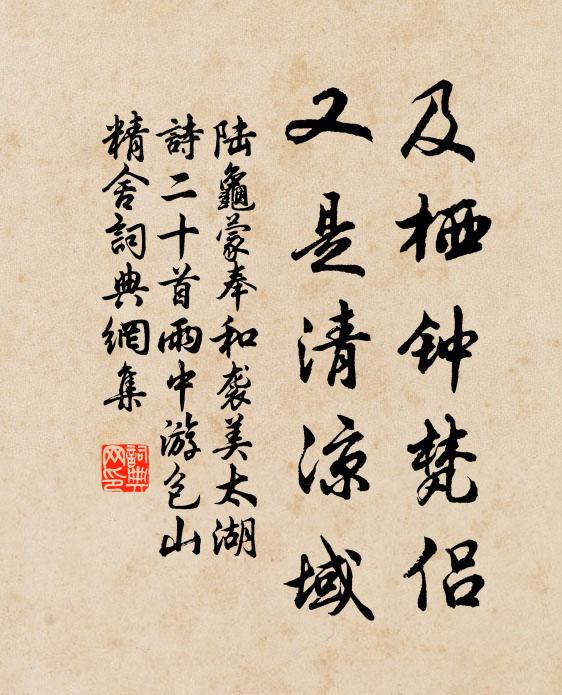 及栖钟梵侣
又是清凉域
陆龜蒙奉和袭美太湖
詩二十首雨中游包山
精舍詞典網集
詞典网印